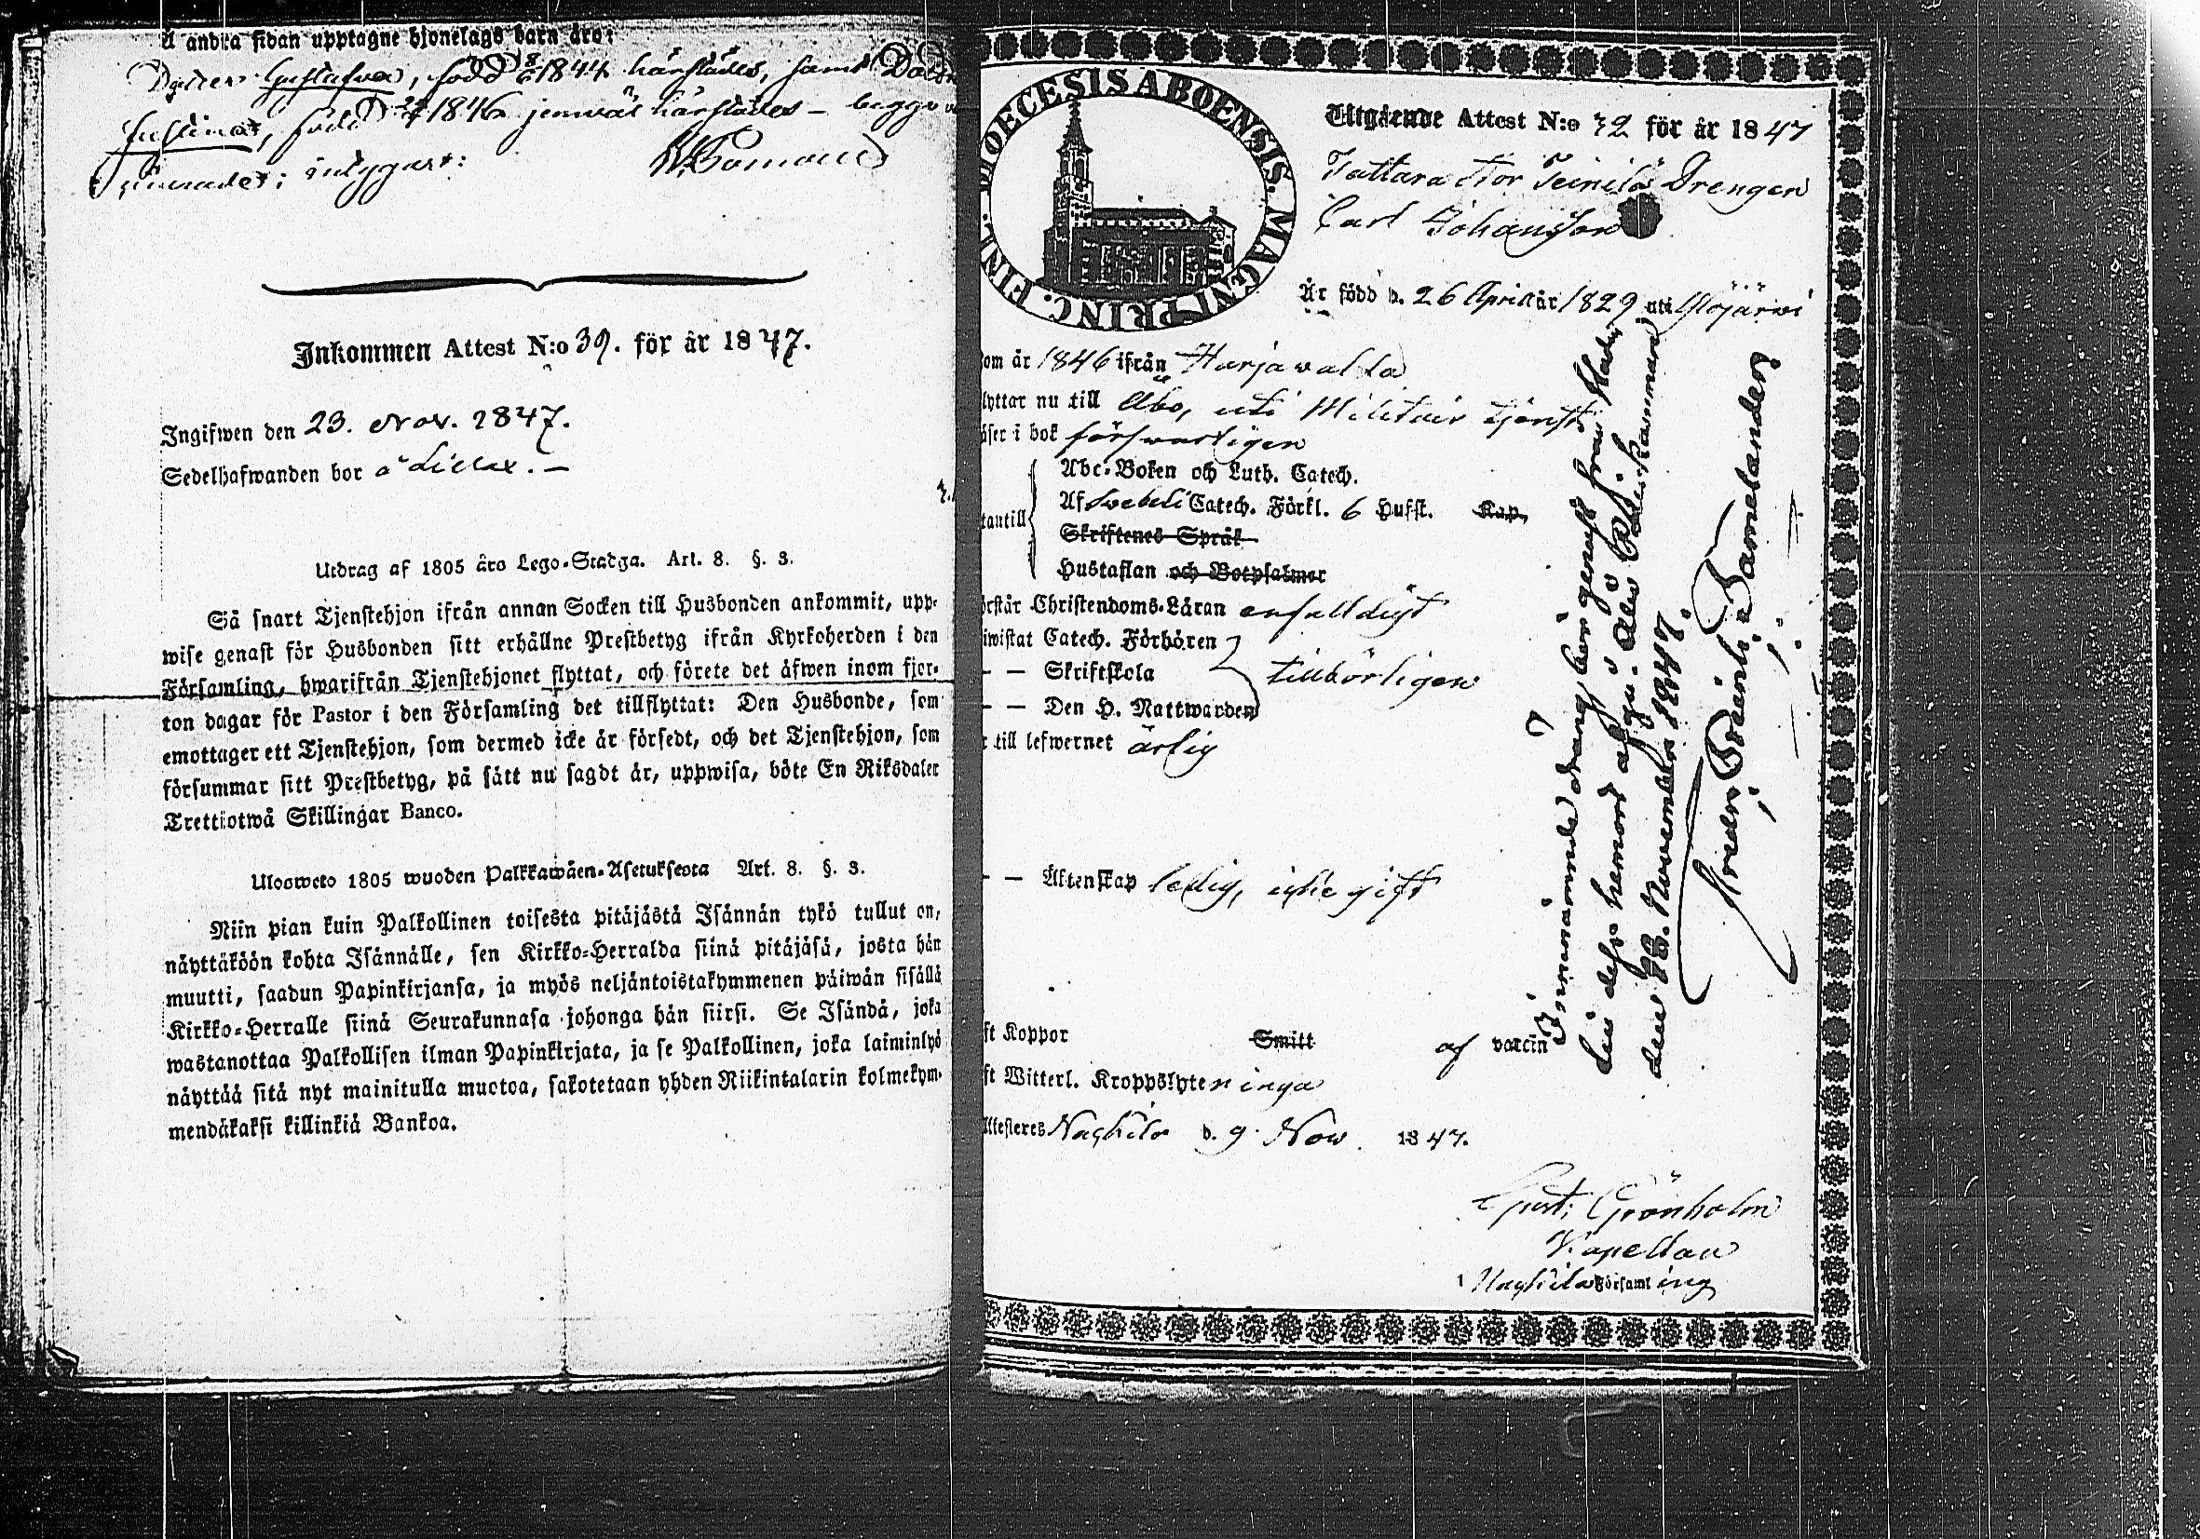 Å andra sidan upptagne hjonelags barn äro:
Dotter Gustafva, född 8/6 1844 härstädes, samt
Justina, född 1846 jemväl härstädes — begge
intygar:
Inkommen Attest N:o 39. för år 1847.
Ingifwen den 23. Nov. 1847.
Sedelhafwanden bor å Lillax. —
Utdrag af 1805 års Lego-Stadga. Art. 8. §. 3.
Så snart Tjenstehjon ifrån annan Socken till Husbonden ankommit, upp-
wise genast för Husbonden sitt erhållne Prestbetyg ifrån Kyrkoherden i den
Församling, hwarifrån Tjenstehjonet flyttat, och förete det äfwen inom fjor-
ton dagar för Pastor i den Församling det tillflyttat: Den Husbonde, som
emottager ett Tjenstehjon, som dermed icke är försedt, och det Tjenstehjon, som
försummar sitt Prestbetyg, på sätt nu sagdt är, uppwisa, böte En Riksdaler
Trettiotwå Skillingar Banco.
Ulosweto 1805 wuoden Palkkawäen-Asetuksesta Art. 8. §. 3.
Niin pian kuin Palkollinen toisesta pitäjästä Isännän tykö tullut on,
näyttäköön kohta Isännälle, sen Kirkko-Herralda siinä pitäjäsä, josta hän
muutti, saadun Papinkirjansa, ja myös neljäntoistakymmenen päiwän sisällä
Kirkko-Herralle siinä Seurakunnasa johonga hän siirsi. Se Isändä, joka
wastanottaa Palkollisen ilman Papinkirjata, ja se Palkollinen, joka laiminlyö
näyttää sitä nyt mainitulla muotoa, sakotetaan yhden Riikintalarin kolmekym-
mendäkaksi killinkiä Bankoa.
DIOECESIS ABOENSIS. MAGNI PRINC. FINL.
Utgående Attest N:o 32 för år 1847
Tattara Stor Teinilä Drengen
Carl Johansson
Är född d. 26 April år 1829 uti Ylöjärvi
om år 1846 ifrån Harjawalta
lyttar nu till Åbo, uti Militair tjenst
äser i bok försvarligen
Abc-Boken och Luth. Catech.
Af Svebeli Catech. Förkl. 6 Hufst. Kap.
tantill
Skriftenes Språk
Hustaflan och Botpsalmer
örstår Christendoms-Läran enfalldigt
iwistat Catech. Förhören
— — Skriftskola tillbörligen
— — Den H. Nattwarden
r till lefwernet ärlig
— — Äktenskap ledig, icke gift
ft Koppor Smitt af vaccin
ft Witterl. Kroppslyten inga
Attesteras Nackila d. 9 Nov. 1847.
Gust: Grönholm
Kapellan
i Nackila Församling
Innevarande dräng bör genast från Staden
till dess hemort afgå. Åbo Poliskammare
den 18. November 1847.